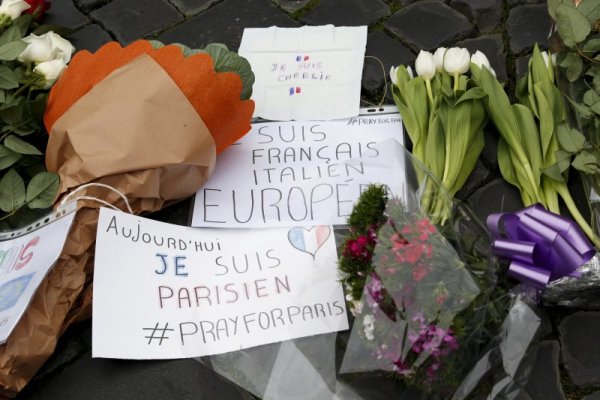 JE SUIS
CHARLIE
#PRAYFORPARIS
JE SUIS
FRANÇAIS
ITALIEN
EUROPÉEN
AUJOURD'HUI
JE SUIS
PARISIEN
#PRAYFORPARIS